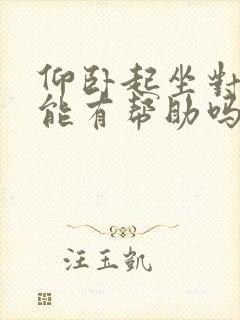 仰卧起坐對
能有帮助吗
汪玉凯